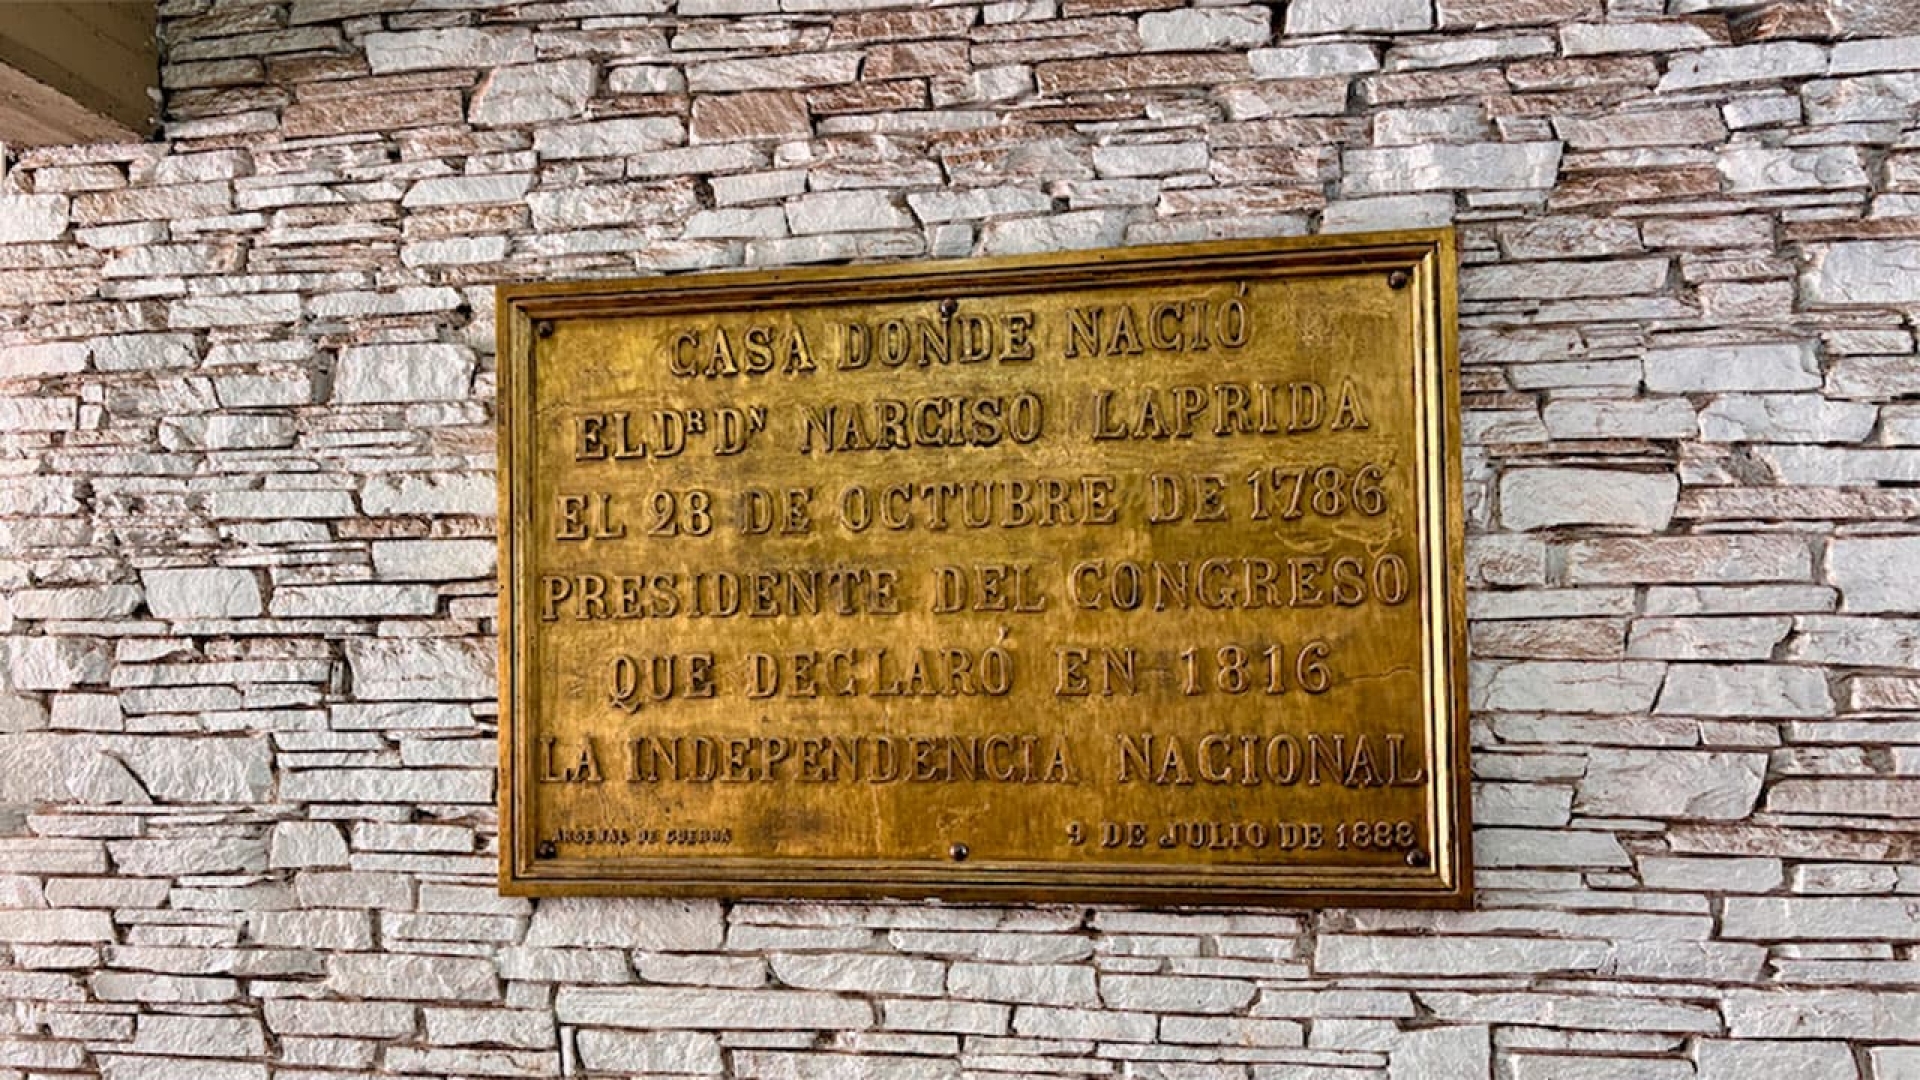 CASA DONDE NACIÓ
EL DR DN NARCISO LAPRIDA
EL 28 DE OCTUBRE DE 1786
PRESIDENTE DEL CONGRESO
QUE DECLARÓ EN 1816
LA INDEPENDENCIA NACIONAL
ARSENAL DE GUERRA 9 DE JULIO DE 1888